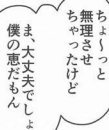 ちょ〜っと
無理させ
ちゃったけど
ま、大丈夫でしょ
僕の恵だもん